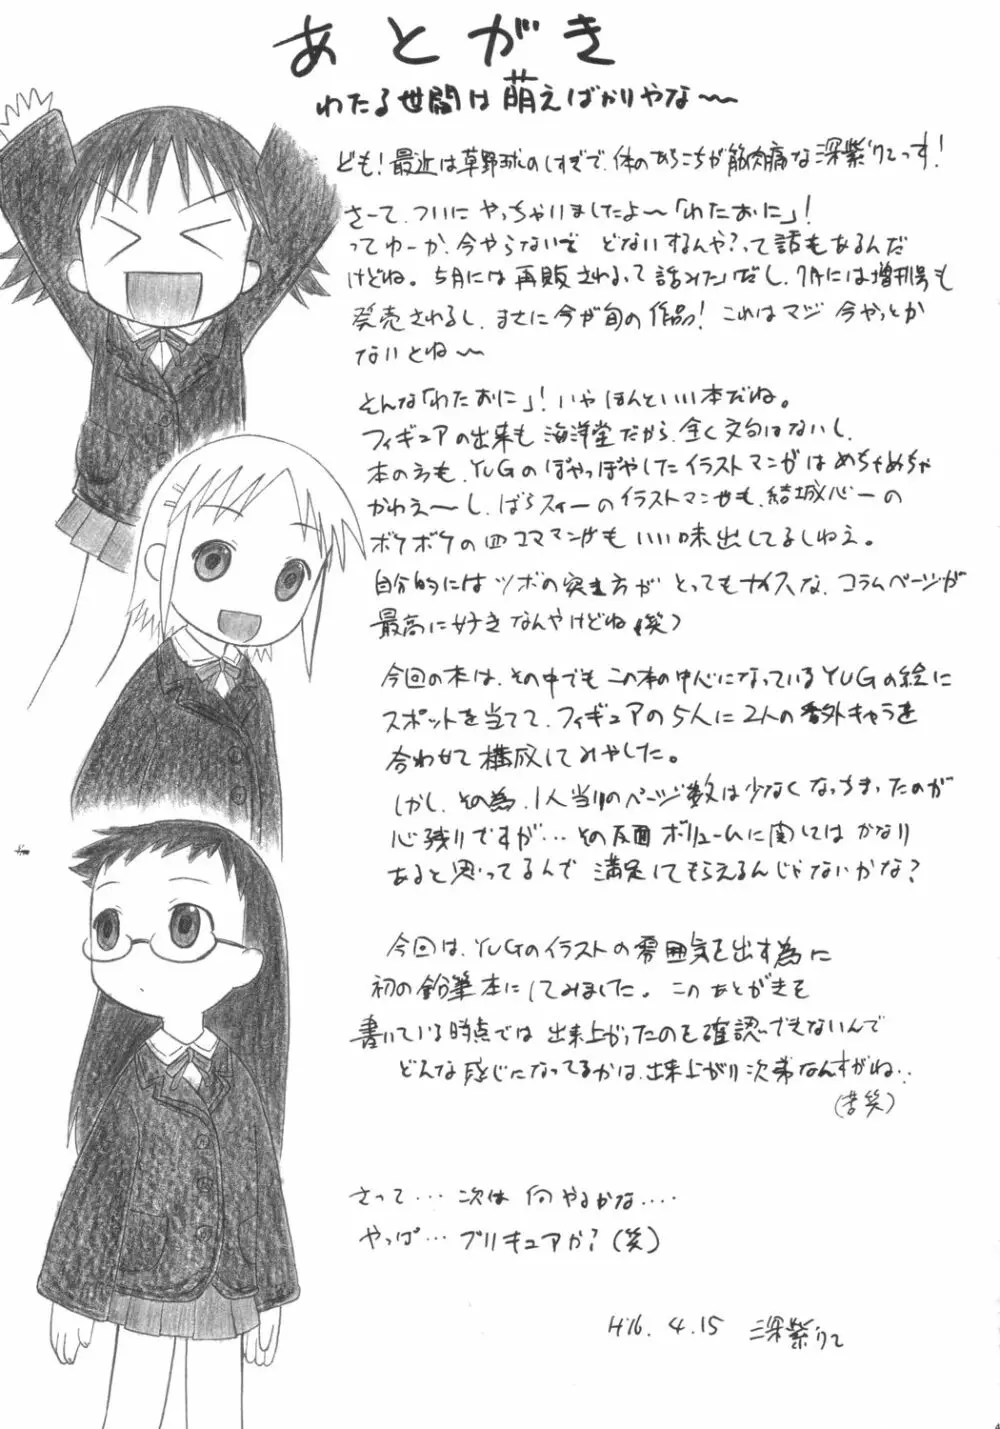 あとがき
わたる世間は萌えばかりやな〜
ども!最近は草野球のしすぎで、体のあちこちが筋肉痛な深紫りこっす!
さーて、ついにやっちゃいましたよ〜「わたおに」!
ってゆーか、今やらないでどないするんや?って話もあるんだ
けどね。5月には再販されるって話みたいだし、7月には増刊号も
発売されるし、まさに今が旬の作品!これはマジ今やっとか
ないとね〜
そんな「わたおに」!いやほんといい本だね。
フィギュアの出来も海洋堂だから、全く文句はないし、
本の方も、YUGのぽやっぽやしたイラストマンガはめちゃめちゃ
かわえ〜し、ばらスィーのイラストマンガも、結城心一の
ボケボケの四コママンガもいい味出してるしねえ。
自分的にはツボの突き方がとってもナイスな、コラムページが
最高に好きなんやけどね(笑)
今回の本は、その中でもこの本の中心になっているYUGの絵に
スポットを当てて、フィギュアの5人に2人の番外キャラを
合わせて構成してみやした。
しかし、その為、1人当りのページ数は少なくなっちまったのが
心残りですが…その反面ボリュームに関してはかなり
あると思ってるんで満足してもらえるんじゃないかな?
今回は、YUGのイラストの雰囲気を出す為に
初の鉛筆本にしてみました。このあとがきを
書いている時点では出来上がったのを確認できないんで
どんな感じになってるかは、出来上がり次第なんすがね…
(苦笑)
さって…次は何やるかな….
やっぱ…プリキュアか?(笑)
H16.4.15 深紫りこ